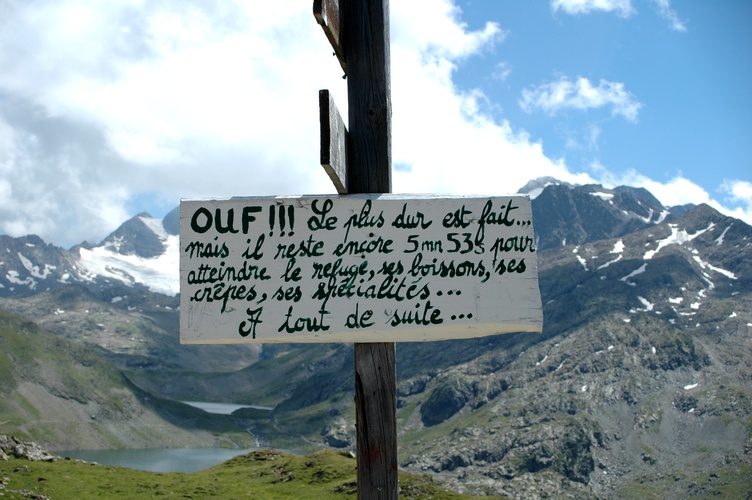 OUF!!! Le plus dur est fait...
mais il reste encore 5 mn 53s pour
atteindre le refuge, ses boissons, ses
crêpes, ses spécialités...
A tout de suite...